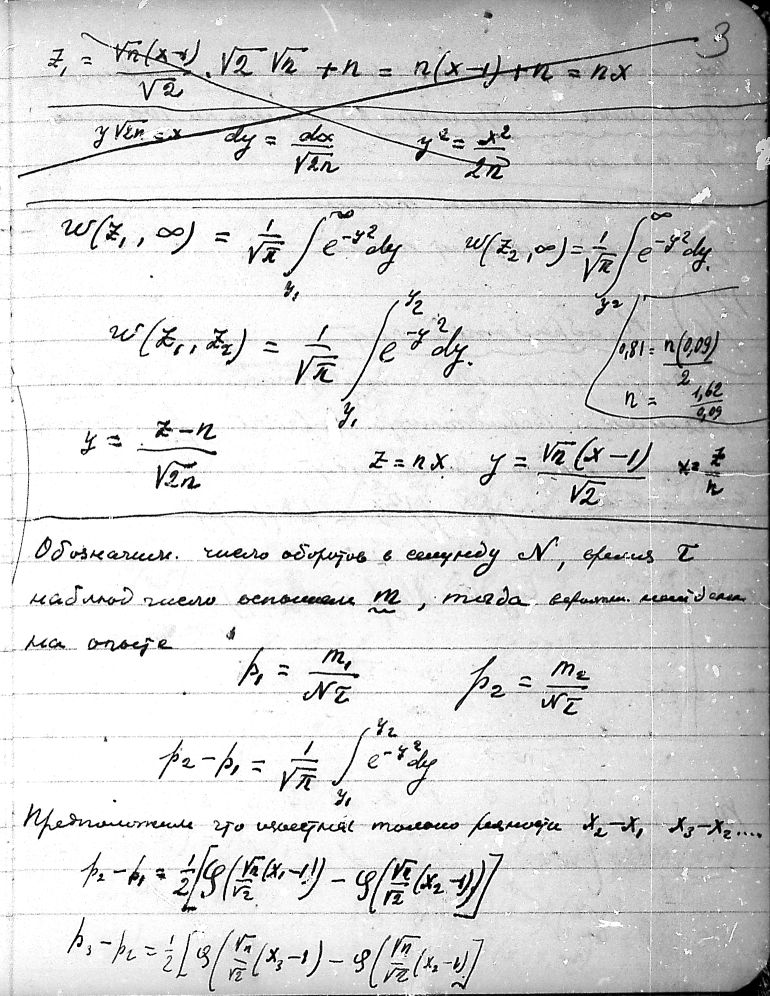 3
z₁ = √n(x-1)/√2 · √2 √n + n = n(x-1) + n = nx
y√2n = x dy = dx/√2n y² = x²/2n
w(z₁, ∞) = 1/√π ∫_{y₁}^{∞} e^{-y²} dy w(z₂, ∞) = 1/√π ∫_{y₂}^{∞} e^{-y²} dy.
w(z₁, z₂) = 1/√π ∫_{y₁}^{y₂} e^{-y²} dy.
0,81 = n(0,09)/2
n = 1,62/0,09
y = z-n/√2n z = nx. y = √n(x-1)/√2 x = z/n
Обозначим. число оборотов в секунду N, время τ
наблюд число вспышек m, тогда вероятн.
на опыте
p₁ = m₁/Nτ p₂ = m₂/Nτ
p₂-p₁ = 1/√π ∫_{y₁}^{y₂} e^{-y²} dy
Предположим что известны только разности x₂-x₁ x₃-x₂....
p₂-p₁ = 1/2[φ(√n/√2(x₁-1)) - φ(√n/√2(x₂-1))]
p₃-p₂ = 1/2[φ(√n/√2(x₃-1) - φ(√n/√2(x₂-1)]